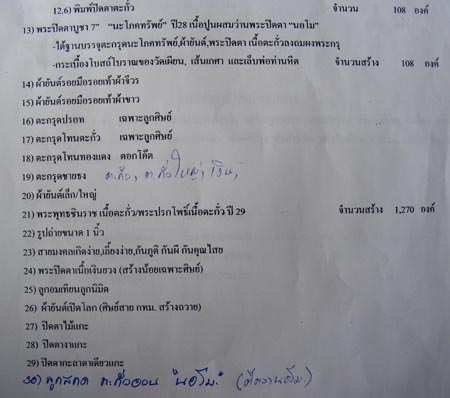 12.6) พิมพ์ปิดตาตะกั่ว จำนวน 108 องค์
13) พระปิดตาบูชา 7" "นะโภคทรัพย์" ปี28 เนื้อปูนผสมว่านพระปิดตา "นอโม"
-ใต้ฐานบรรจุตะกรุดนะโภคทรัพย์,ผ้ายันต์,พระปิดตา เนื้อตะกั่วลงถมผงพระกรุ
-กระเบื้องโบสถ์โบราณของวัดเผียน, เส้นเกศา และเล็บพ่อท่านหีต จำนวนสร้าง 108 องค์
14) ผ้ายันต์รอยมือรอยเท้าผ้าจีวร
15) ผ้ายันต์รอยมือรอยเท้าผ้าขาว
16) ตะกรุดปรอท เฉพาะลูกศิษย์
17) ตะกรุดโทนตะกั่ว เฉพาะลูกศิษย์
18) ตะกรุดโทนทองแดง ตอกโค๊ต
19) ตะกรุดชายธง ตะกั่ว, ตะกั่วใหญ่, เงิน,
20) ผ้ายันต์เล็ก/ใหญ่
21) พระพุทธชินราช เนื้อตะกั่ว/พระปรกโพธิ์เนื้อตะกั่ว ปี 29 จำนวนสร้าง 1,270 องค์
22) รูปถ่ายขนาด 1 นิ้ว
23) สายมงคลเกิดง่าย,เลี้ยงง่าย,กันภูติ กันผี กันคุณไสย
24) พระปิดตาเนื้อเงินยวง (สร้างน้อยเฉพาะศิษย์)
25) ลูกอมเทียนลูกนิมิต
26) ผ้ายันต์เปิดโลก (ศิษย์สาย กทม. สร้างถวาย)
27) ปิดตาไม้แกะ
28) ปิดตางาแกะ
29) ปิดตากะลาตาเดียวแกะ
30) ลูกสกด ตะกั่ว "นอโม"